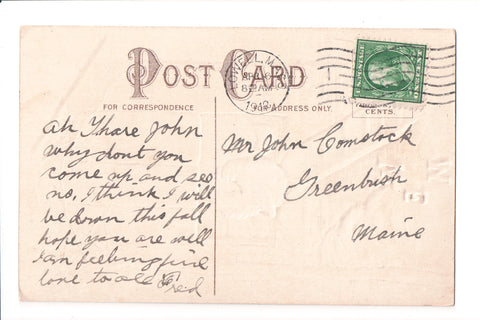 POST CARD
FOR CORRESPONDENCE
FOR ADDRESS ONLY.
CENTS.
LOWELL, M
8 AM
1912
ah Thare John
why dont you
come up and see
no, I think I will
be down this fall
hope you are well
I am feeling fine
love to all Fred
Mr John Comstock
Greenbush
Maine